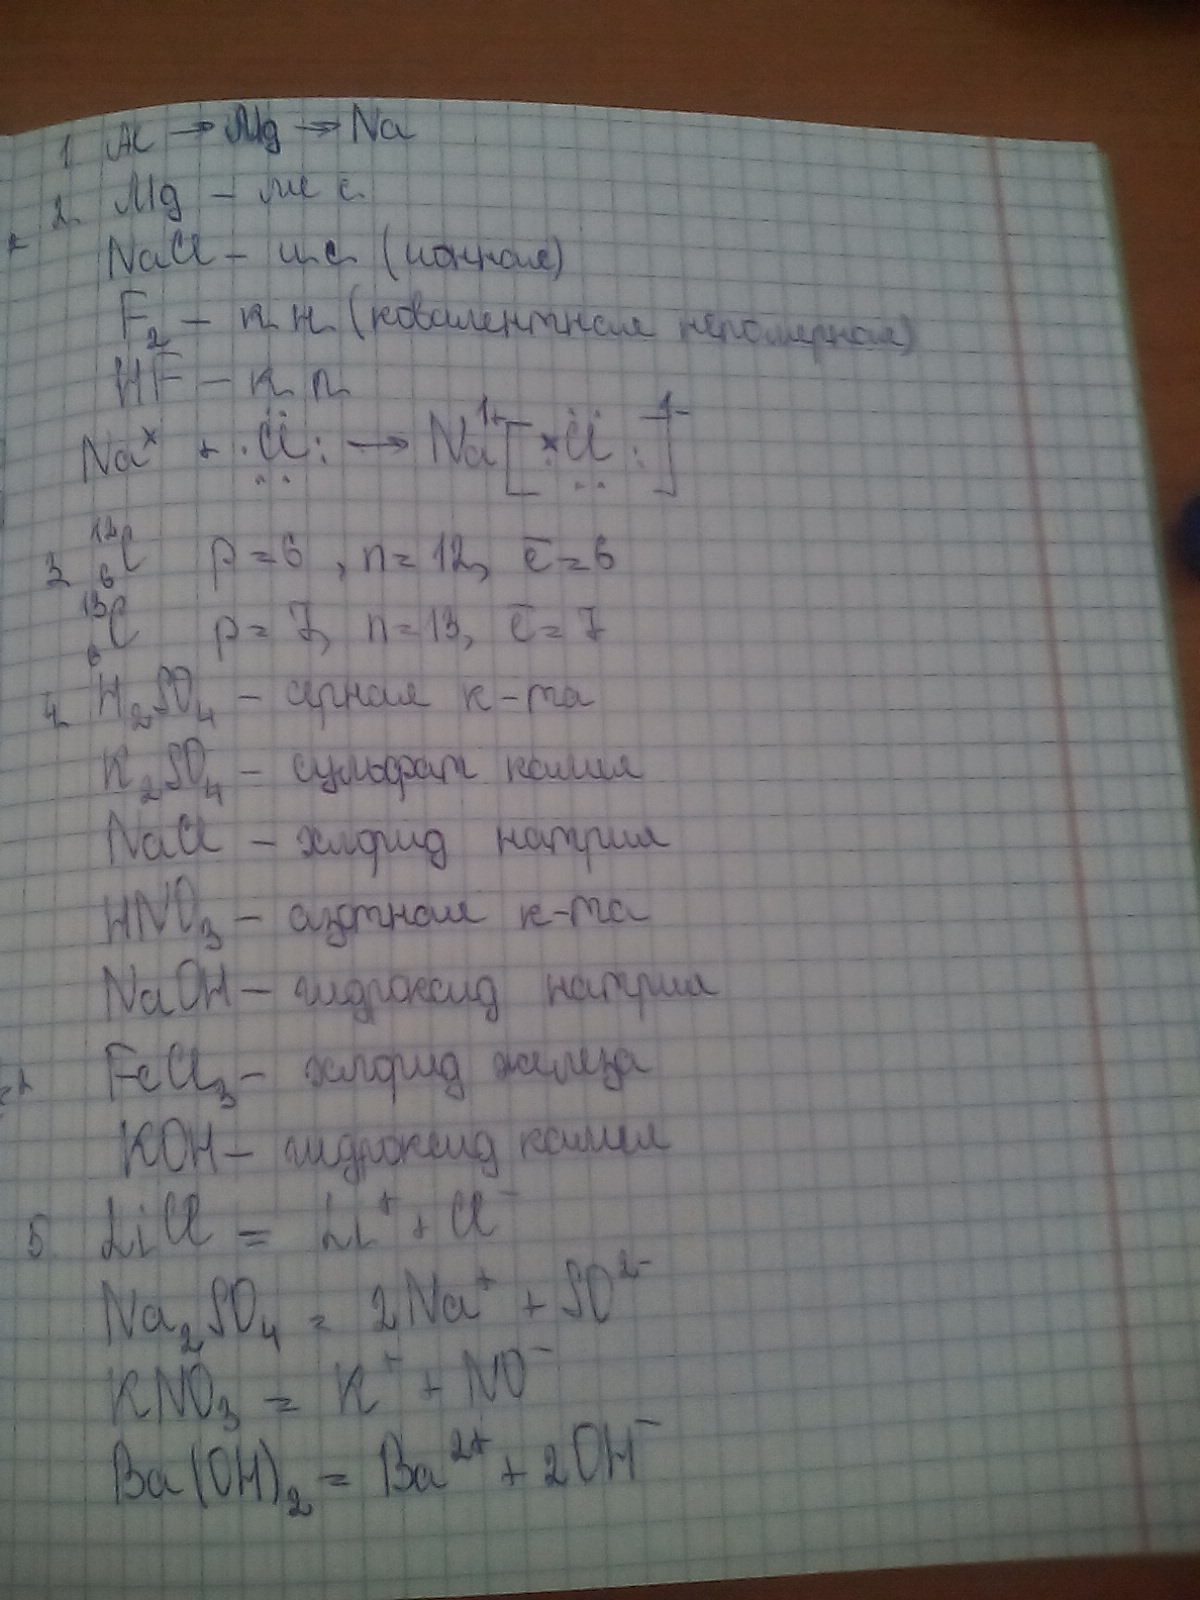 1 Al → Mg → Na
2. Mg – м с.
NaCl – и.с. (ионная)
F₂ – к н (ковалентная неполярная)
HF – к п
Naˣ + ·Cl: → Na¹⁺[ˣCl:]¹⁻
3 ¹²₆C p = 6, n = 12, ē = 6
¹³₆C p = 7, n = 13, ē = 7
4. H₂SO₄ – серная к-та
K₂SO₄ – сульфат калия
NaCl – хлорид натрия
HNO₃ – азотная к-та
NaOH – гидроксид натрия
FeCl₃ – хлорид железа
KOH – гидроксид калия
5 LiCl = Li⁺ + Cl⁻
Na₂SO₄ = 2Na⁺ + SO²⁻
KNO₃ = K⁺ + NO⁻
Ba(OH)₂ = Ba²⁺ + 2OH⁻